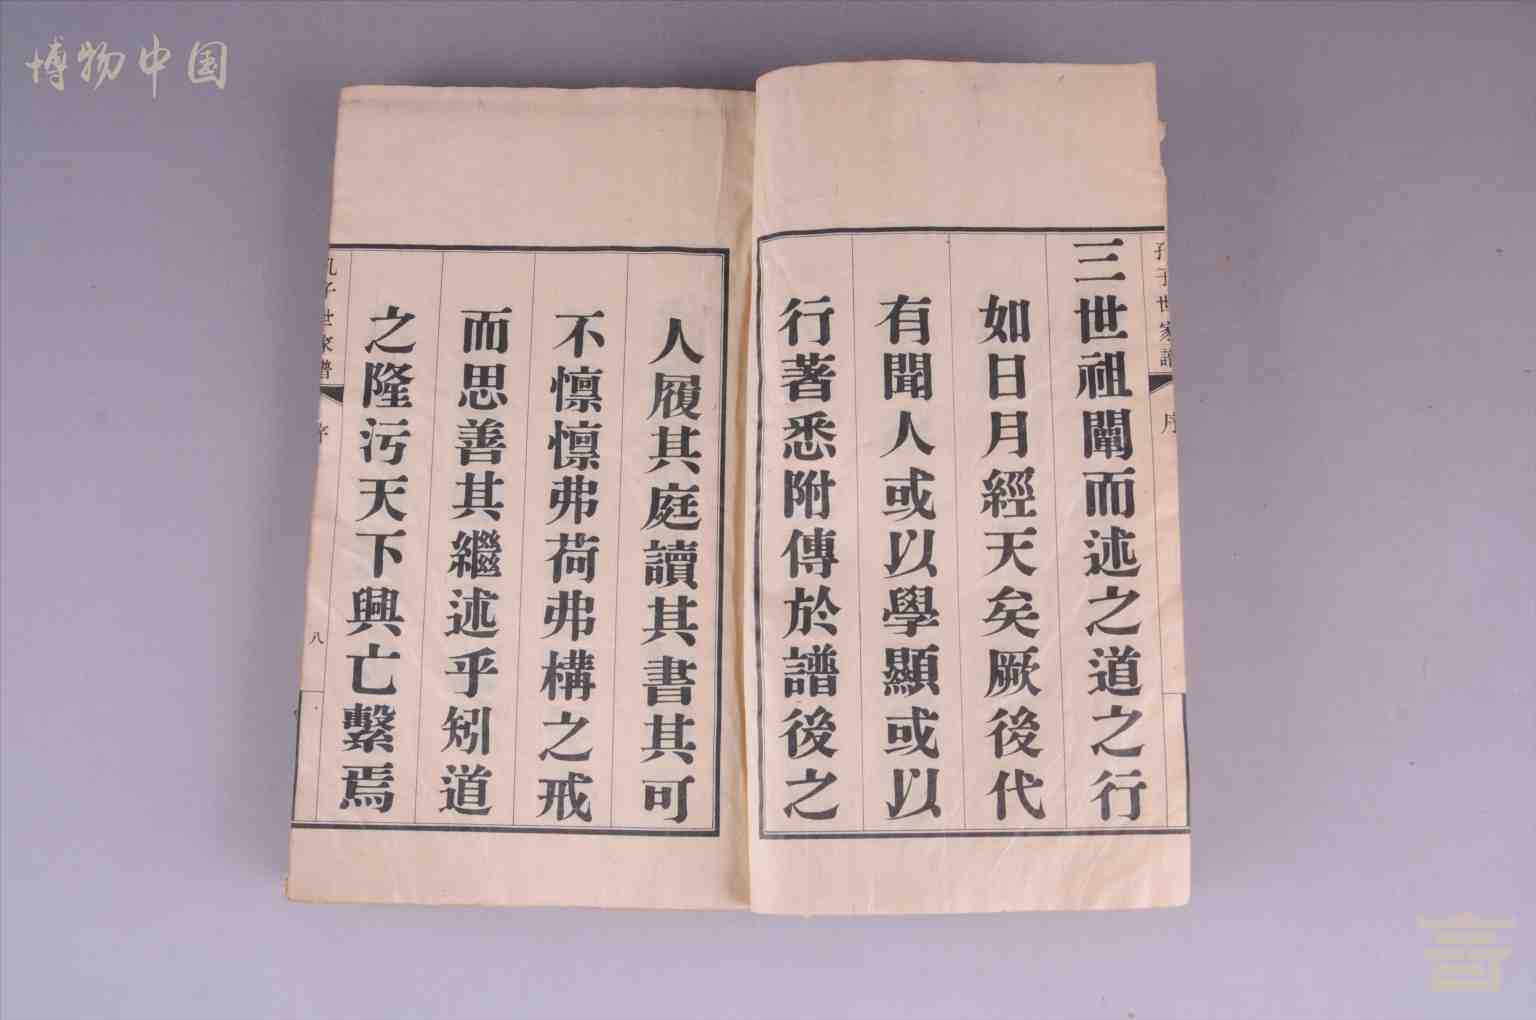 博物中国
孔子世家譜
序
三世祖闡而述之道之行
如日月經天矣厥後代
有聞人或以學顯或以
行著悉附傳於譜後之
人履其庭讀其書其可
不懍懍弗荷弗構之戒
而思善其繼述乎矧道
之隆污天下興亡繫焉
孔子世家譜
序
八